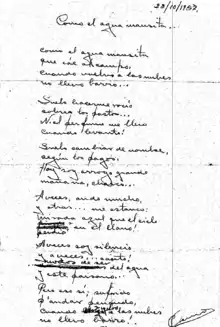 23/10/1957
Como el agua mansita...
Como el agua mansita
Que cae al campo,
Cuando vuelvo a las nubes
no llevo barro...
Suelo hacerme rocío
sobre los pastos...
Ni el perfume me llevo
cuando levanto!
Suelo cambiar de nombre,
según los pagos.
Hoy soy arroyo grande
mañana, charco...
A veces, ando mucho,
y otras... me estanco:
azul que el cielo
perdió en el llano!
A veces soy silencio
y a veces... canto!
del agua
y este paisano...
Pero eso sí, suspiro
cuando a las nubes
no llevo barro!